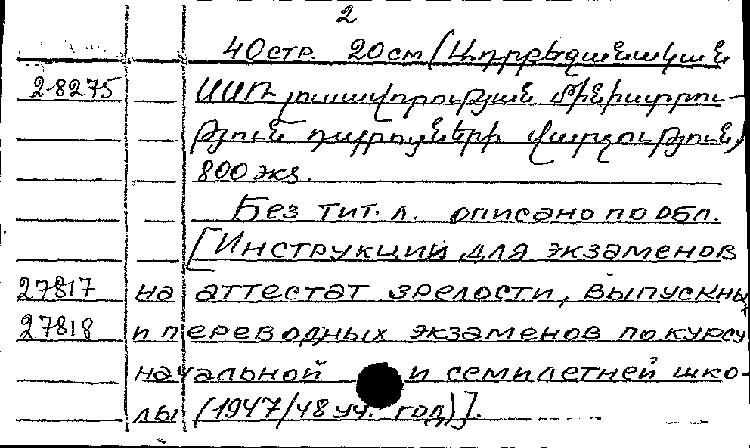 2
40стр. 20см (Ադրբեջանական
28275 ՍՍՌ լուսավորության մինիստրու-
թյուն դպրոցների վարչություն)
800 экз.
Без тит. л. описано по обл.
[Инструкции для экзаменов
27817 на аттестат зрелости, выпускных
27818 и переводных экзаменов по курсу
начальной и семилетней шко-
лы (1947/48 уч. год)].